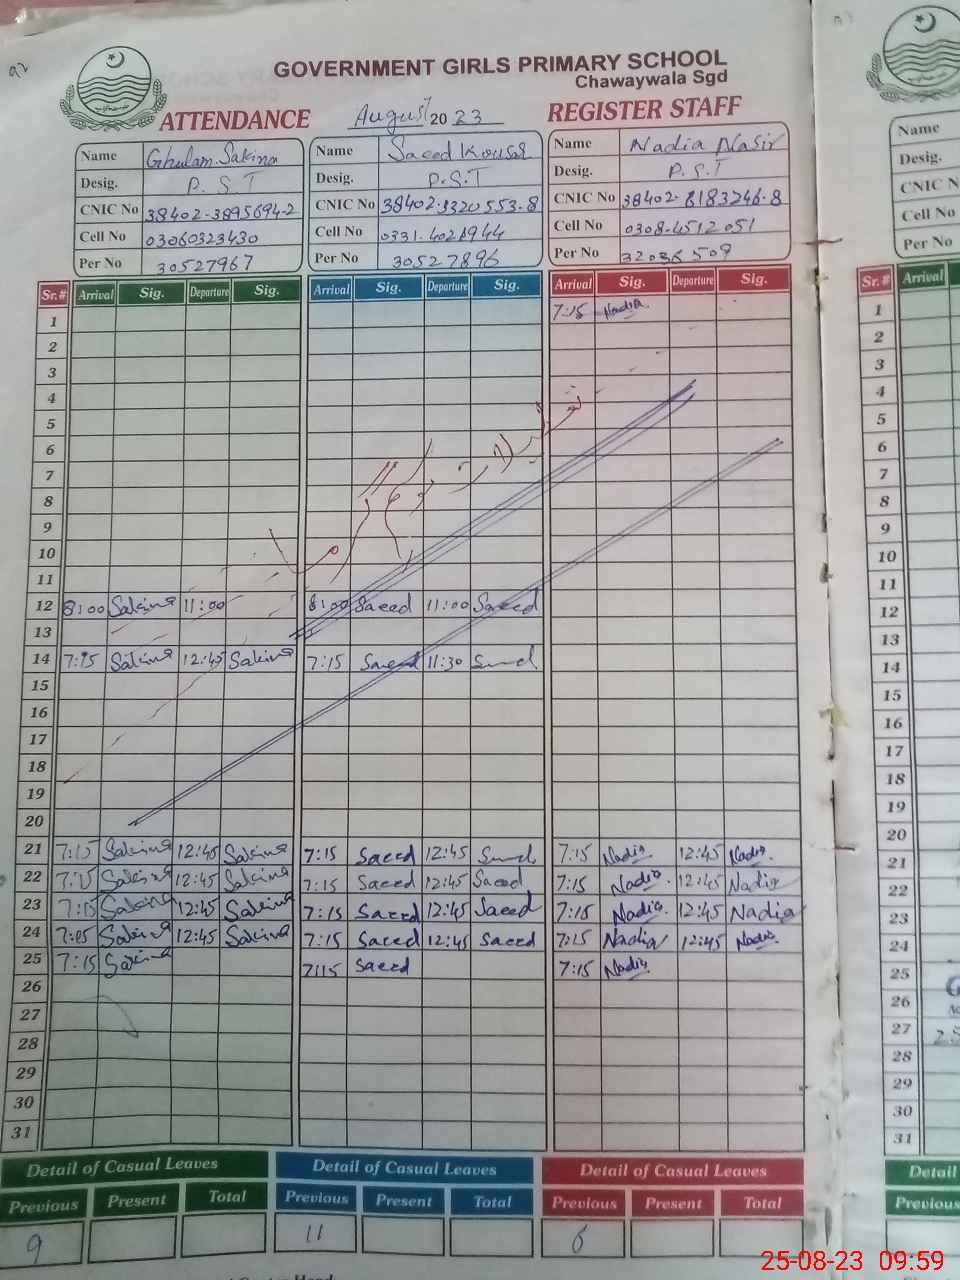 92
GOVERNMENT GIRLS PRIMARY SCHOOL
Chawaywala Sgd
ATTENDANCE August 2023 REGISTER STAFF
Name Ghulam Sakina Name Saeed Kousar Name Nadia Nasir
Desig. P.S.T Desig. P.S.T Desig. P.S.T
CNIC No 38402-3895694-2 CNIC No 38402-3320553-8 CNIC No 38402-8183246-8
Cell No 03060323430 Cell No 0331-4028944 Cell No 0308-4512051
Per No 30527967 Per No 30527896 Per No 32036509
Sr.# Arrival Sig. Departure Sig. Arrival Sig. Departure Sig. Arrival Sig. Departure Sig.
1 7:15 Nadia
2
3
4
5
6
7
8
9
10
11
تعطیلات موسم گرما
12 8:00 Sakina 11:00 8:00 Saeed 11:00 Saeed
13
14 7:15 Sakina 12:45 Sakina 7:15 Saeed 11:30 Saeed
15
16
17
18
19
20
21 7:15 Sakina 12:45 Sakina 7:15 Saeed 12:45 Saeed 7:15 Nadia 12:45 Nadia
22 7:15 Sakina 12:45 Sakina 7:15 Saeed 12:45 Saeed 7:15 Nadia 12:45 Nadia
23 7:15 Sakina 12:45 Sakina 7:15 Saeed 12:45 Saeed 7:15 Nadia 12:45 Nadia
24 7:15 Sakina 12:45 Sakina 7:15 Saeed 12:45 Saeed 7:15 Nadia 12:45 Nadia
25 7:15 Sakina 7:15 Saeed 7:15 Nadia
26
27
28
29
30
31
Detail of Casual Leaves Detail of Casual Leaves Detail of Casual Leaves
Previous Present Total Previous Present Total Previous Present Total
9 11 6
Name
Desig.
CNIC N
Cell No
Per No
Sr.# Arrival
1
2
3
4
5
6
7
8
9
10
11
12
13
14
15
16
17
18
19
20
21
22
23
24
25
26
27
28
29
30
31
Detail
Previous
25-08-23 09:59